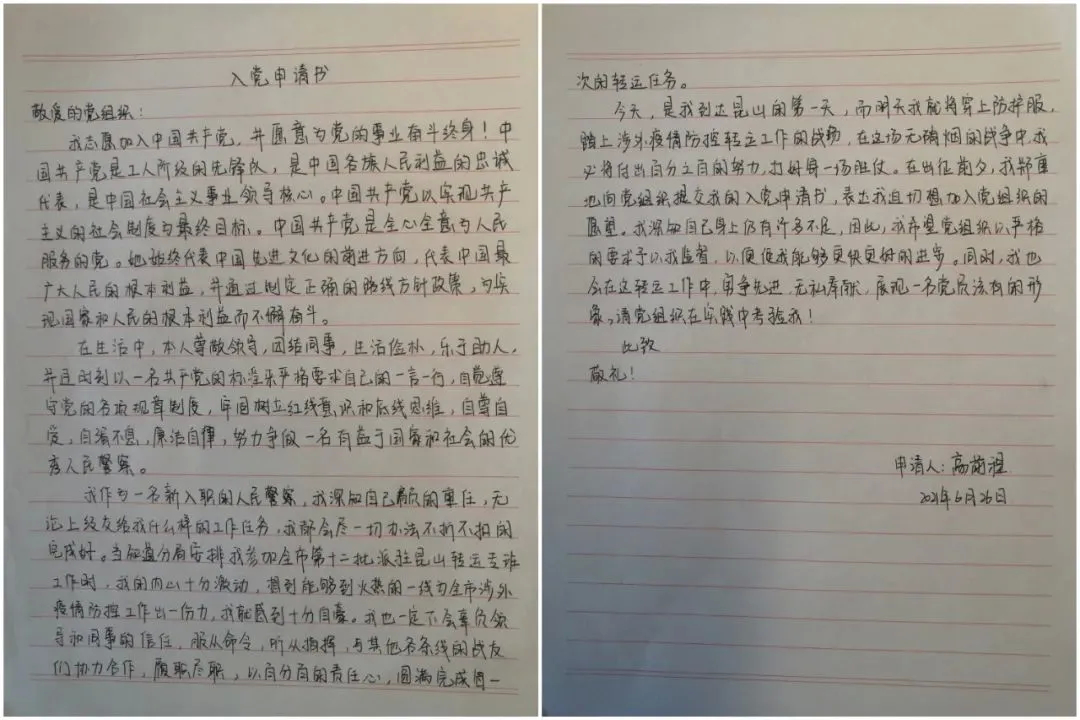 入党申请书
敬爱的党组织：
我志愿加入中国共产党，并愿意为党的事业奋斗终身！中
国共产党是工人阶级的先锋队，是中国各族人民利益的忠诚
代表，是中国社会主义事业领导核心。中国共产党以实现共产
主义的社会制度为最终目标。中国共产党是全心全意为人民
服务的党。她始终代表中国先进文化的前进方向，代表中国最
广大人民的根本利益，并通过制定正确的路线方针政策，为实
现国家和人民的根本利益而不懈奋斗。
在生活中，本人尊敬领导，团结同事，生活俭朴，乐于助人，
并时刻以一名共产党的标准来严格要求自己的一言一行，自觉遵
守党的各项规章制度，牢固树立红线意识和底线思维，自尊自
爱，自强不息，廉洁自律，努力争做一名有益于国家和社会的优
秀人民警察。
我作为一名新入职的人民警察，我深知自己肩负的重任，无
论上级交给我什么样的工作任务，我都会尽一切办法不折不扣的
完成好。当分局安排我参加全市第十二批派驻昆山转运专班
工作时，我的内心十分激动，想到能够到火热的一线为全市涉外
疫情防控工作出一份力，我就感到十分自豪。我也一定不会辜负领
导和同事的信任，服从命令，听从指挥，与其他各条线的战友
们协力合作，履职尽职，以百分百的责任心，圆满完成每一
次的转运任务。
今天，是我到达昆山的第一天，而明天我就将穿上防护服，
踏上涉外疫情防控转运工作的战场，在这场无硝烟的战争中，我
必将付出百分之百的努力，打好每一场胜仗。在出征前夕，我郑重
地向党组织提交我的入党申请书，表达我迫切想加入党组织的
愿望。我深知自己身上仍有许多不足，因此，我希望党组织以严格
的要求予以我监督，以便使我能够更快更好的进步。同时，我也
会在这转运工作中，勇争先进，无私奉献，展现一名党员该有的形
象，请党组织在实践中考验我！
此致
敬礼！
申请人：高前程
2021年6月26日